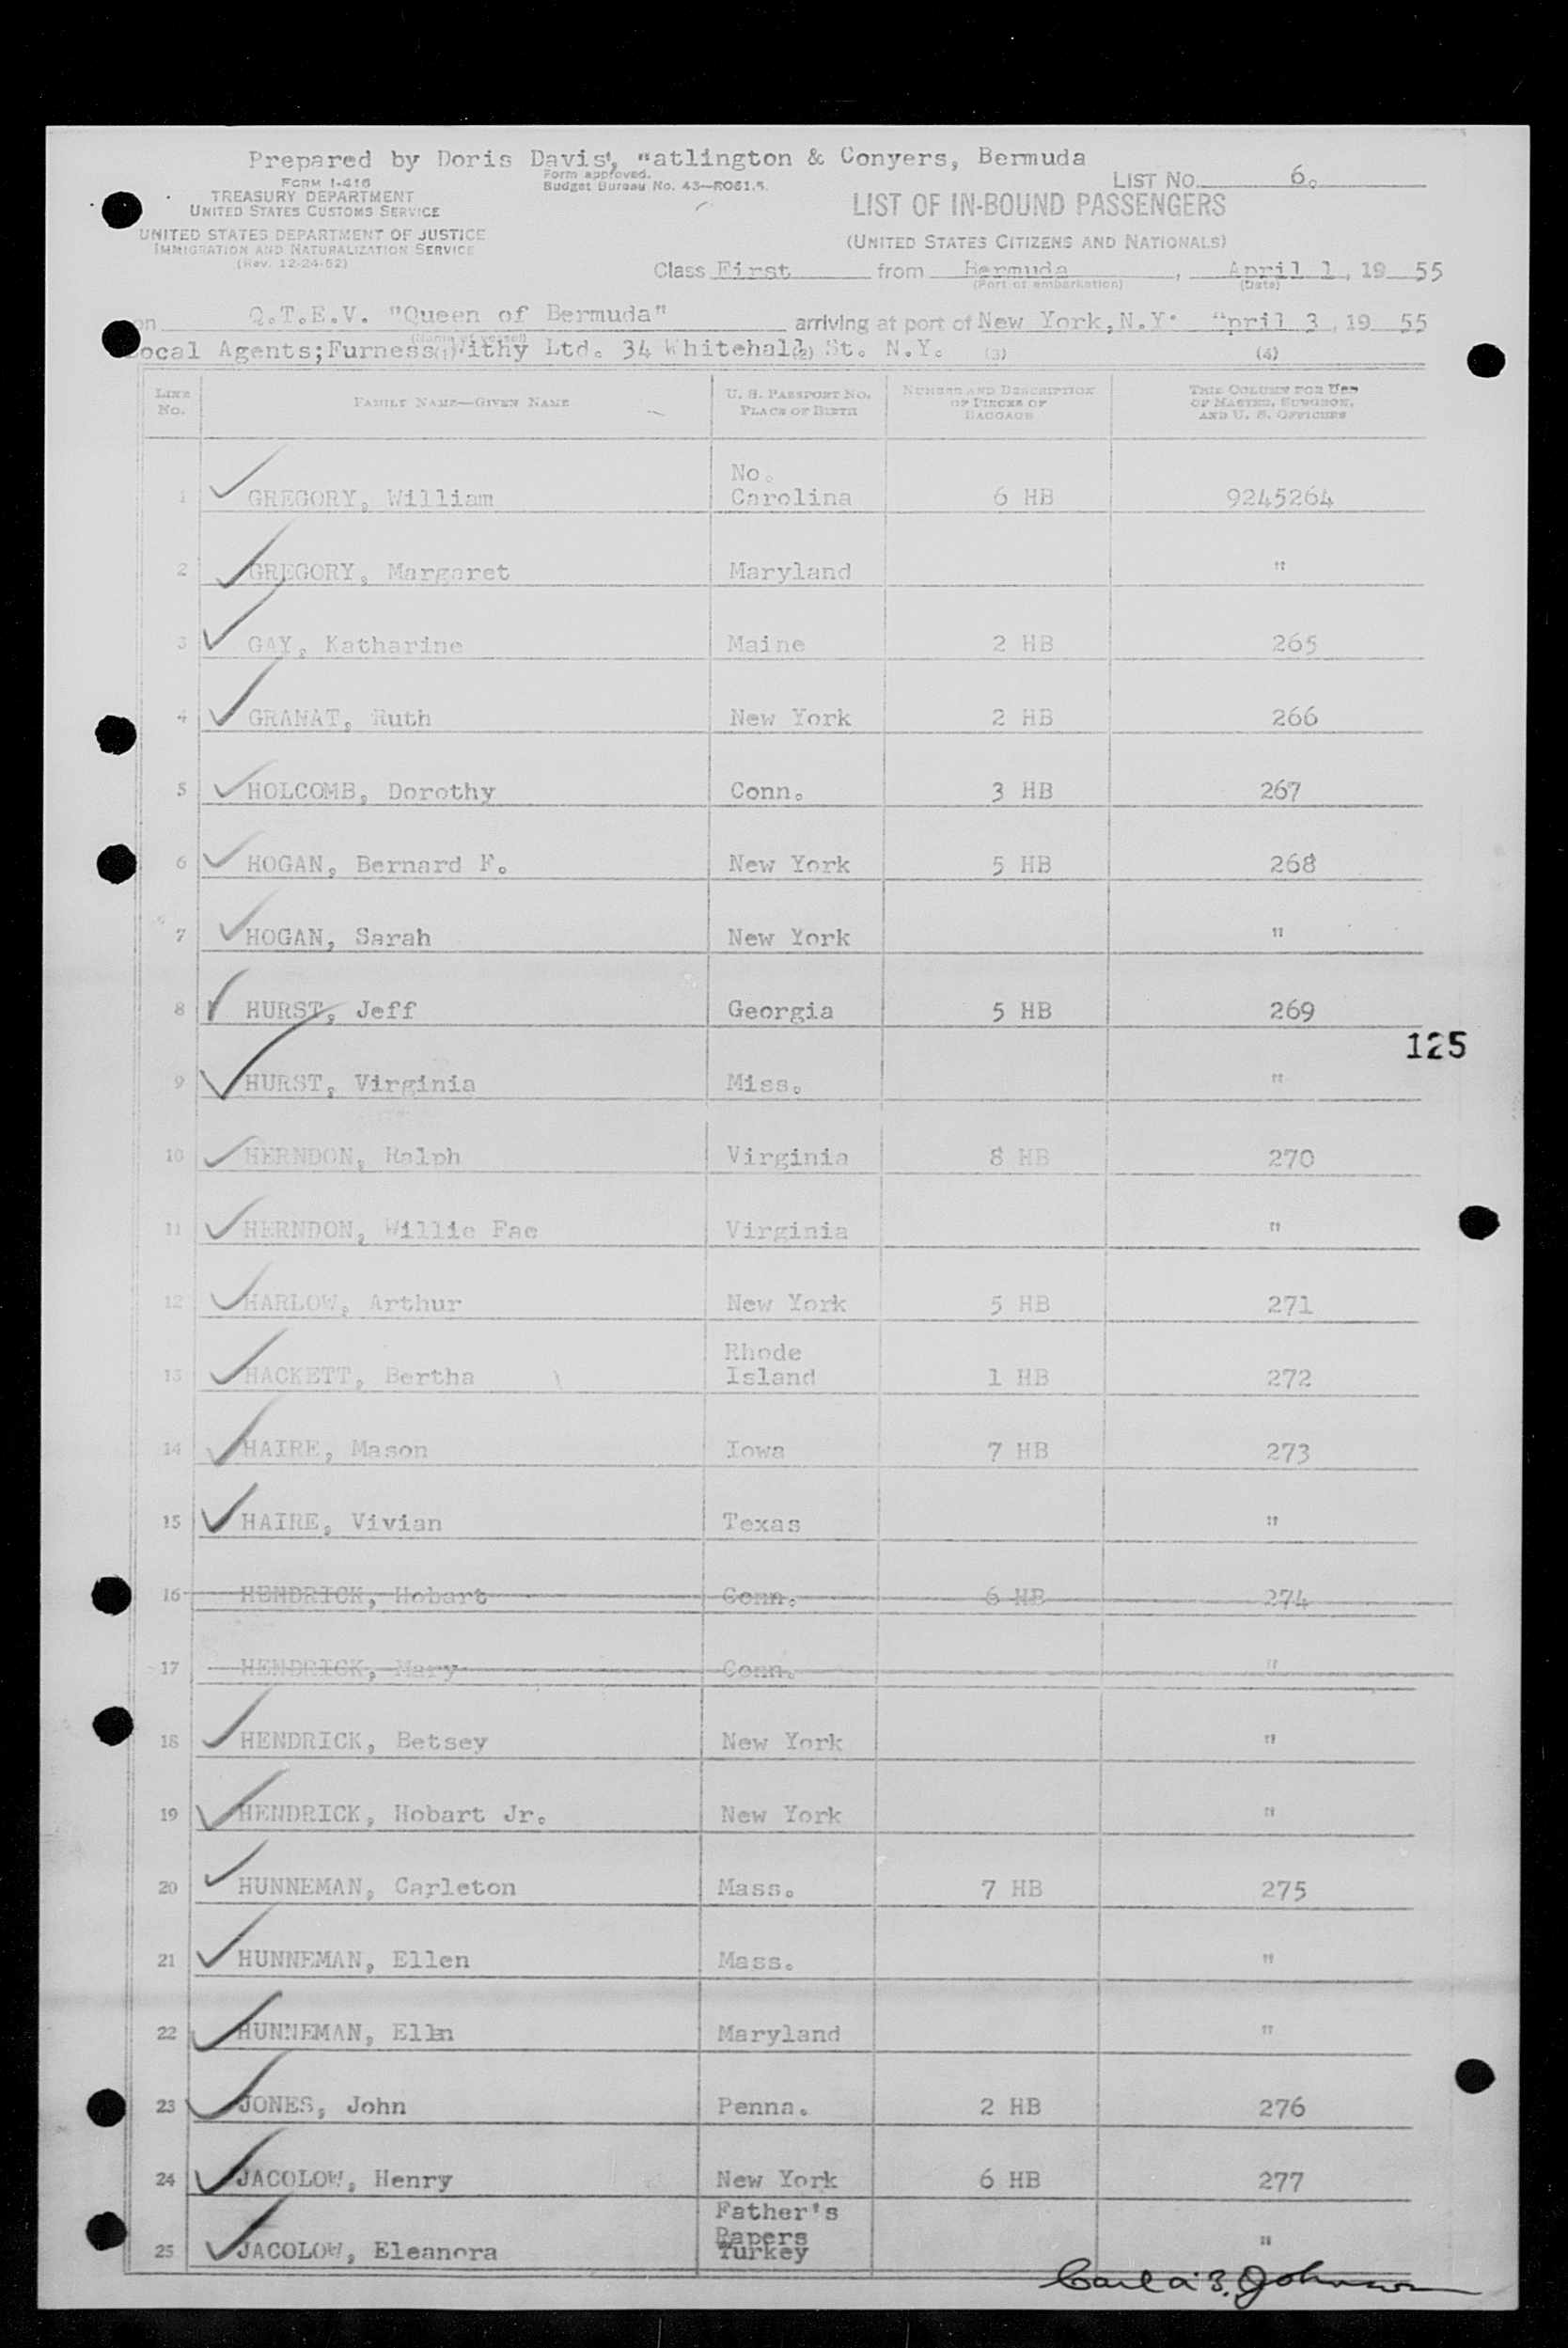 Prepared by Doris Davis', "atlington & Conyers, Bermuda
FORM I-416
TREASURY DEPARTMENT
UNITED STATES CUSTOMS SERVICE
UNITED STATES DEPARTMENT OF JUSTICE
IMMIGRATION AND NATURALIZATION SERVICE
(Rev. 12-24-52)
Form approved.
Budget Bureau No. 43—RO61.5.
LIST NO. 6.
LIST OF IN-BOUND PASSENGERS
(UNITED STATES CITIZENS AND NATIONALS)
Class First from Bermuda, April 1, 19 55
(Port of embarkation) (Date)
on Q.T.E.V. "Queen of Bermuda" arriving at port of New York, N.Y. "pril 3, 19 55
(Name of vessel)
Local Agents; Furness Withy Ltd. 34 Whitehall St. N.Y.
(1) (2) (3) (4)
LINE No. FAMILY NAME—GIVEN NAME U. S. PASSPORT NO. PLACE OF BIRTH NUMBER AND DESCRIPTION OF PIECES OF BAGGAGE THIS COLUMN FOR USE OF MASTER, SURGEON, AND U. S. OFFICERS
1 GREGORY, William No. Carolina 6 HB 9245264
2 GREGORY, Margaret Maryland "
3 GAY, Katharine Maine 2 HB 265
4 GRANAT, Ruth New York 2 HB 266
5 HOLCOMB, Dorothy Conn. 3 HB 267
6 HOGAN, Bernard F. New York 5 HB 268
7 HOGAN, Sarah New York "
8 HURST, Jeff Georgia 5 HB 269
125
9 HURST, Virginia Miss. "
10 HERNDON, Ralph Virginia 8 HB 270
11 HERNDON, Willie Fae Virginia "
12 HARLOW, Arthur New York 5 HB 271
13 HACKETT, Bertha Rhode Island 1 HB 272
14 HAIRE, Mason Iowa 7 HB 273
15 HAIRE, Vivian Texas "
16 HENDRICK, Hobart Conn. 6 HB 274
17 HENDRICK, Mary Conn. "
18 HENDRICK, Betsey New York "
19 HENDRICK, Hobart Jr. New York "
20 HUNNEMAN, Carleton Mass. 7 HB 275
21 HUNNEMAN, Ellen Mass. "
22 HUNNEMAN, Elln Maryland "
23 JONES, John Penna. 2 HB 276
24 JACOLOW, Henry New York 6 HB 277
25 JACOLOW, Eleanora Father's Papers Turkey "
Johnson